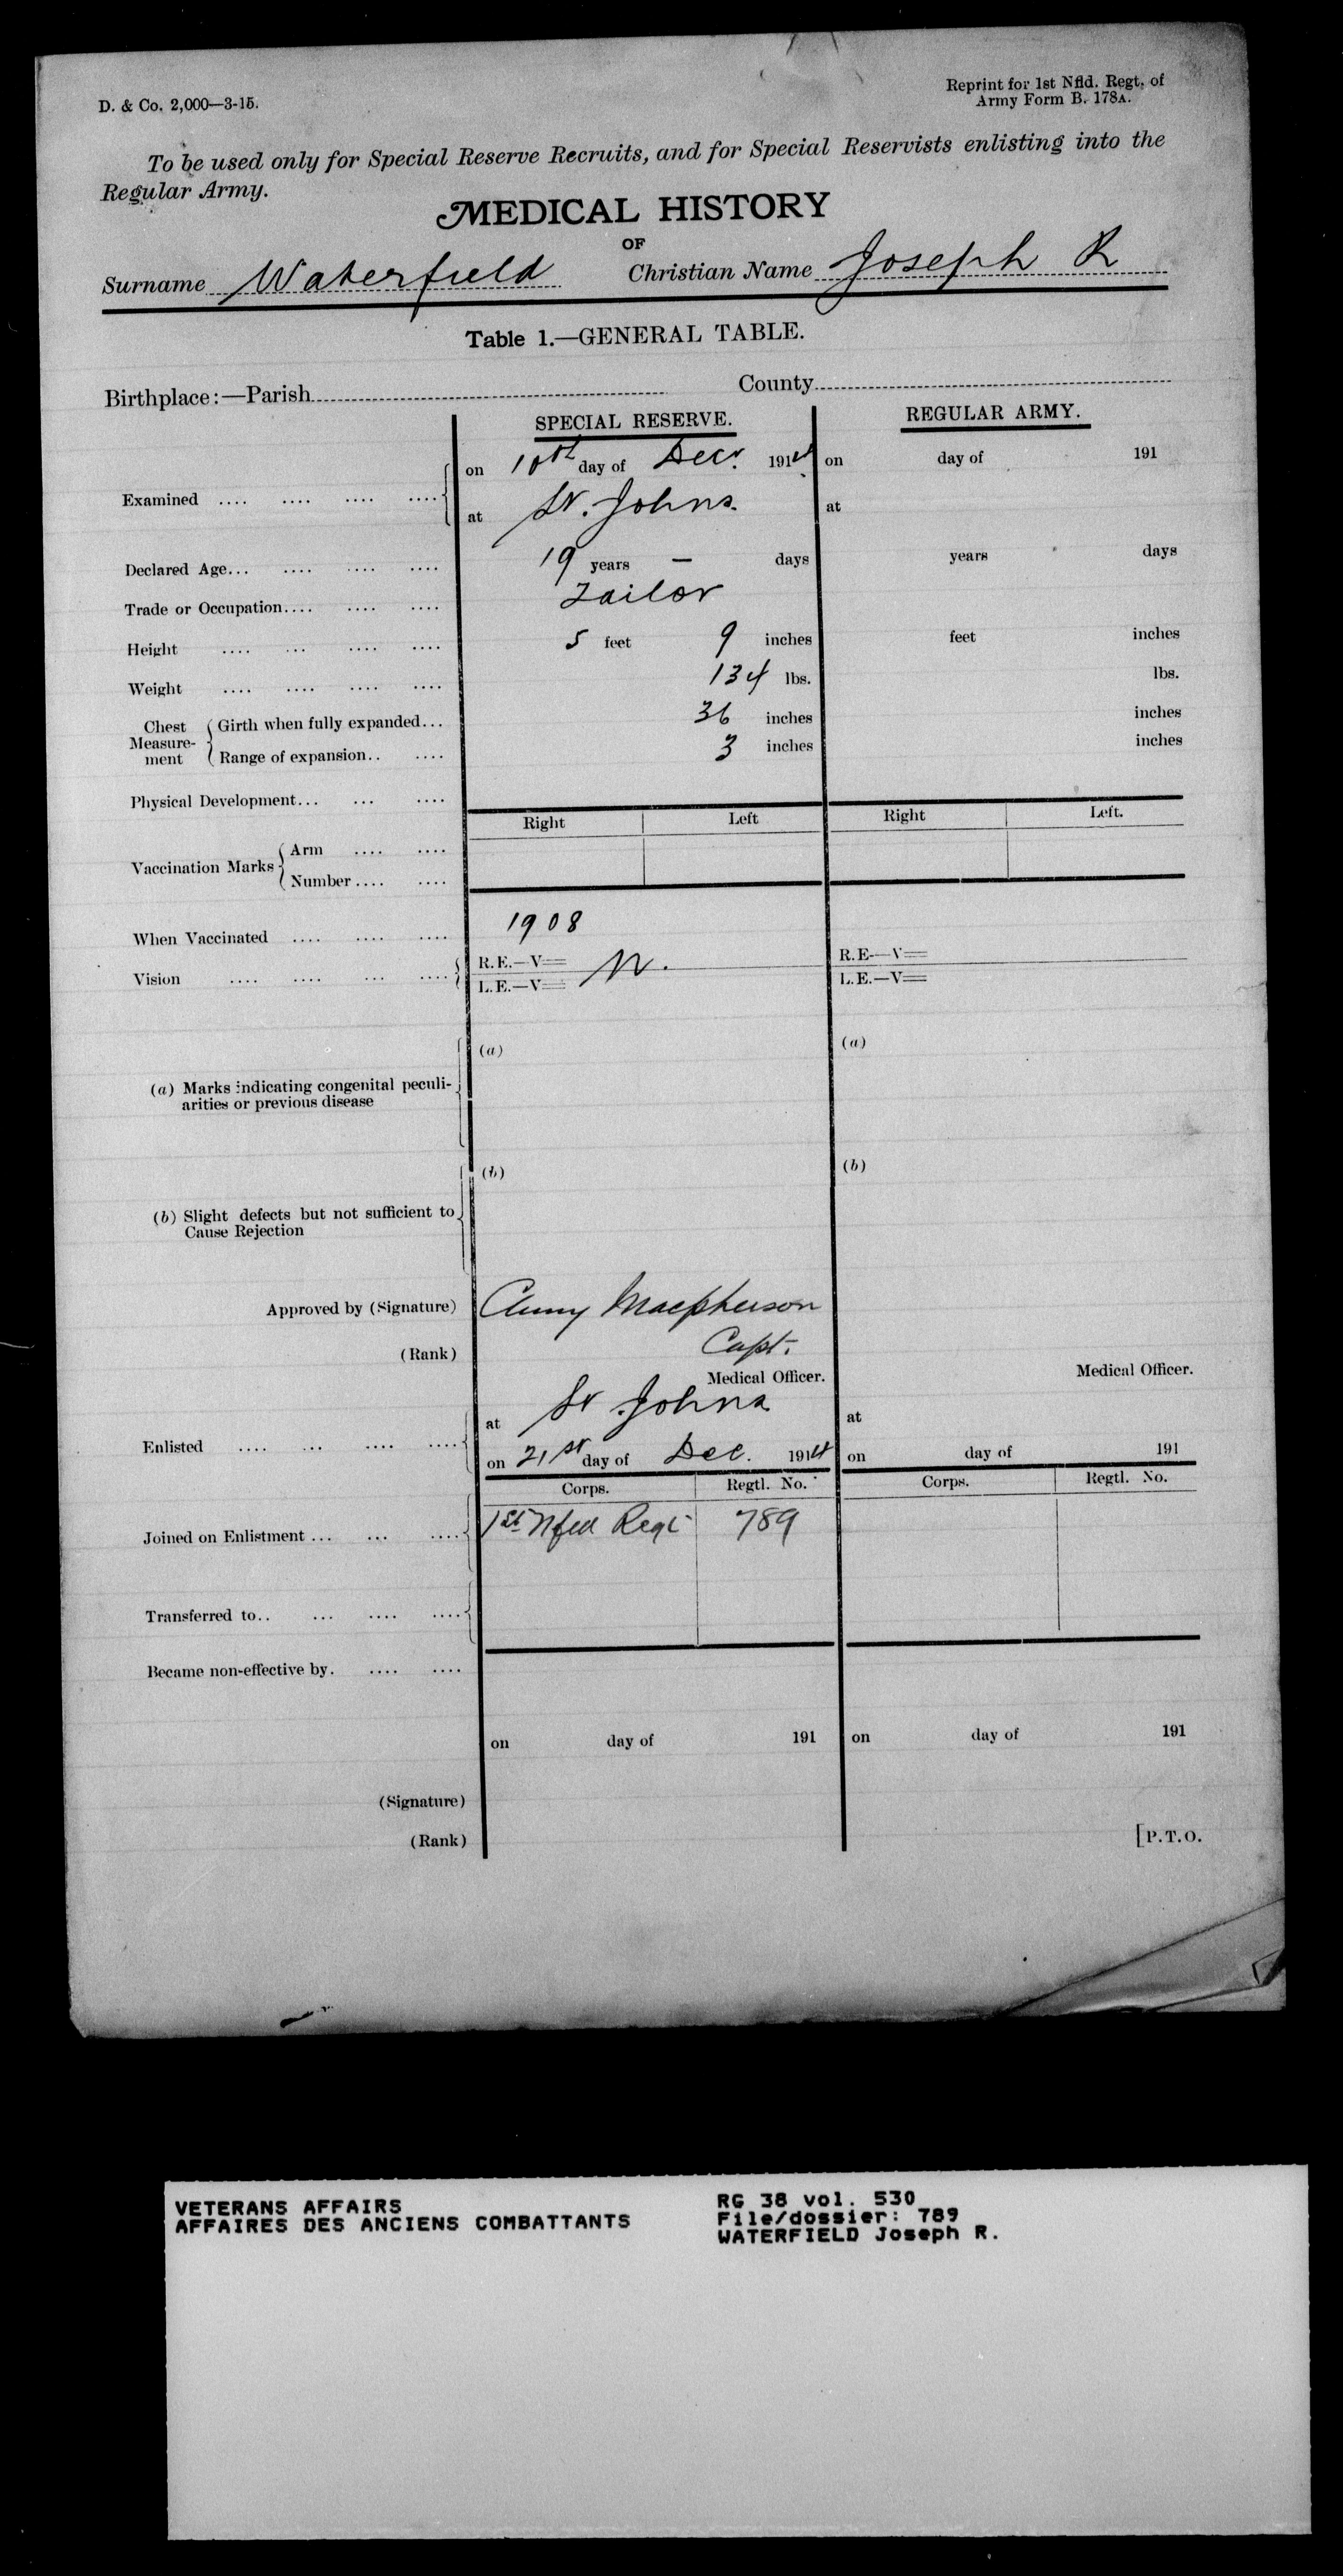 D. & Co. 2,000—3-15.
Reprint for 1st Nfld. Regt. of
Army Form B. 178A.
To be used only for Special Reserve Recruits, and for Special Reservists enlisting into the
Regular Army.
MEDICAL HISTORY
OF
Surname Waterfield Christian Name Joseph R
Table 1.—GENERAL TABLE.
Birthplace:—Parish County
SPECIAL RESERVE. REGULAR ARMY.
Examined on 10th day of Decr. 1914 on day of 191
at St. Johns. at
Declared Age 19 years — days years days
Trade or Occupation Tailor
Height 5 feet 9 inches feet inches
Weight 134 lbs. lbs.
Chest Measure-ment Girth when fully expanded 36 inches inches
Range of expansion 3 inches inches
Physical Development
Right Left Right Left.
Vaccination Marks Arm
Number
When Vaccinated 1908
Vision R.E.—V= N. R.E—V=
L.E.—V= L.E.—V=
(a) (a)
(a) Marks indicating congenital peculi-
arities or previous disease
(b) (b)
(b) Slight defects but not sufficient to
Cause Rejection
Approved by (Signature) Cluny Macpherson
(Rank) Capt.
Medical Officer. Medical Officer.
at St Johns at
Enlisted on 21st day of Dec. 1914 on day of 191
Corps. Regtl. No. Corps. Regtl. No.
Joined on Enlistment 1st Nfld Regt 789
Transferred to
Became non-effective by
on day of 191 on day of 191
(Signature)
(Rank)
[P.T.O.
VETERANS AFFAIRS
AFFAIRES DES ANCIENS COMBATTANTS
RG 38 vol. 530
File/dossier: 789
WATERFIELD Joseph R.